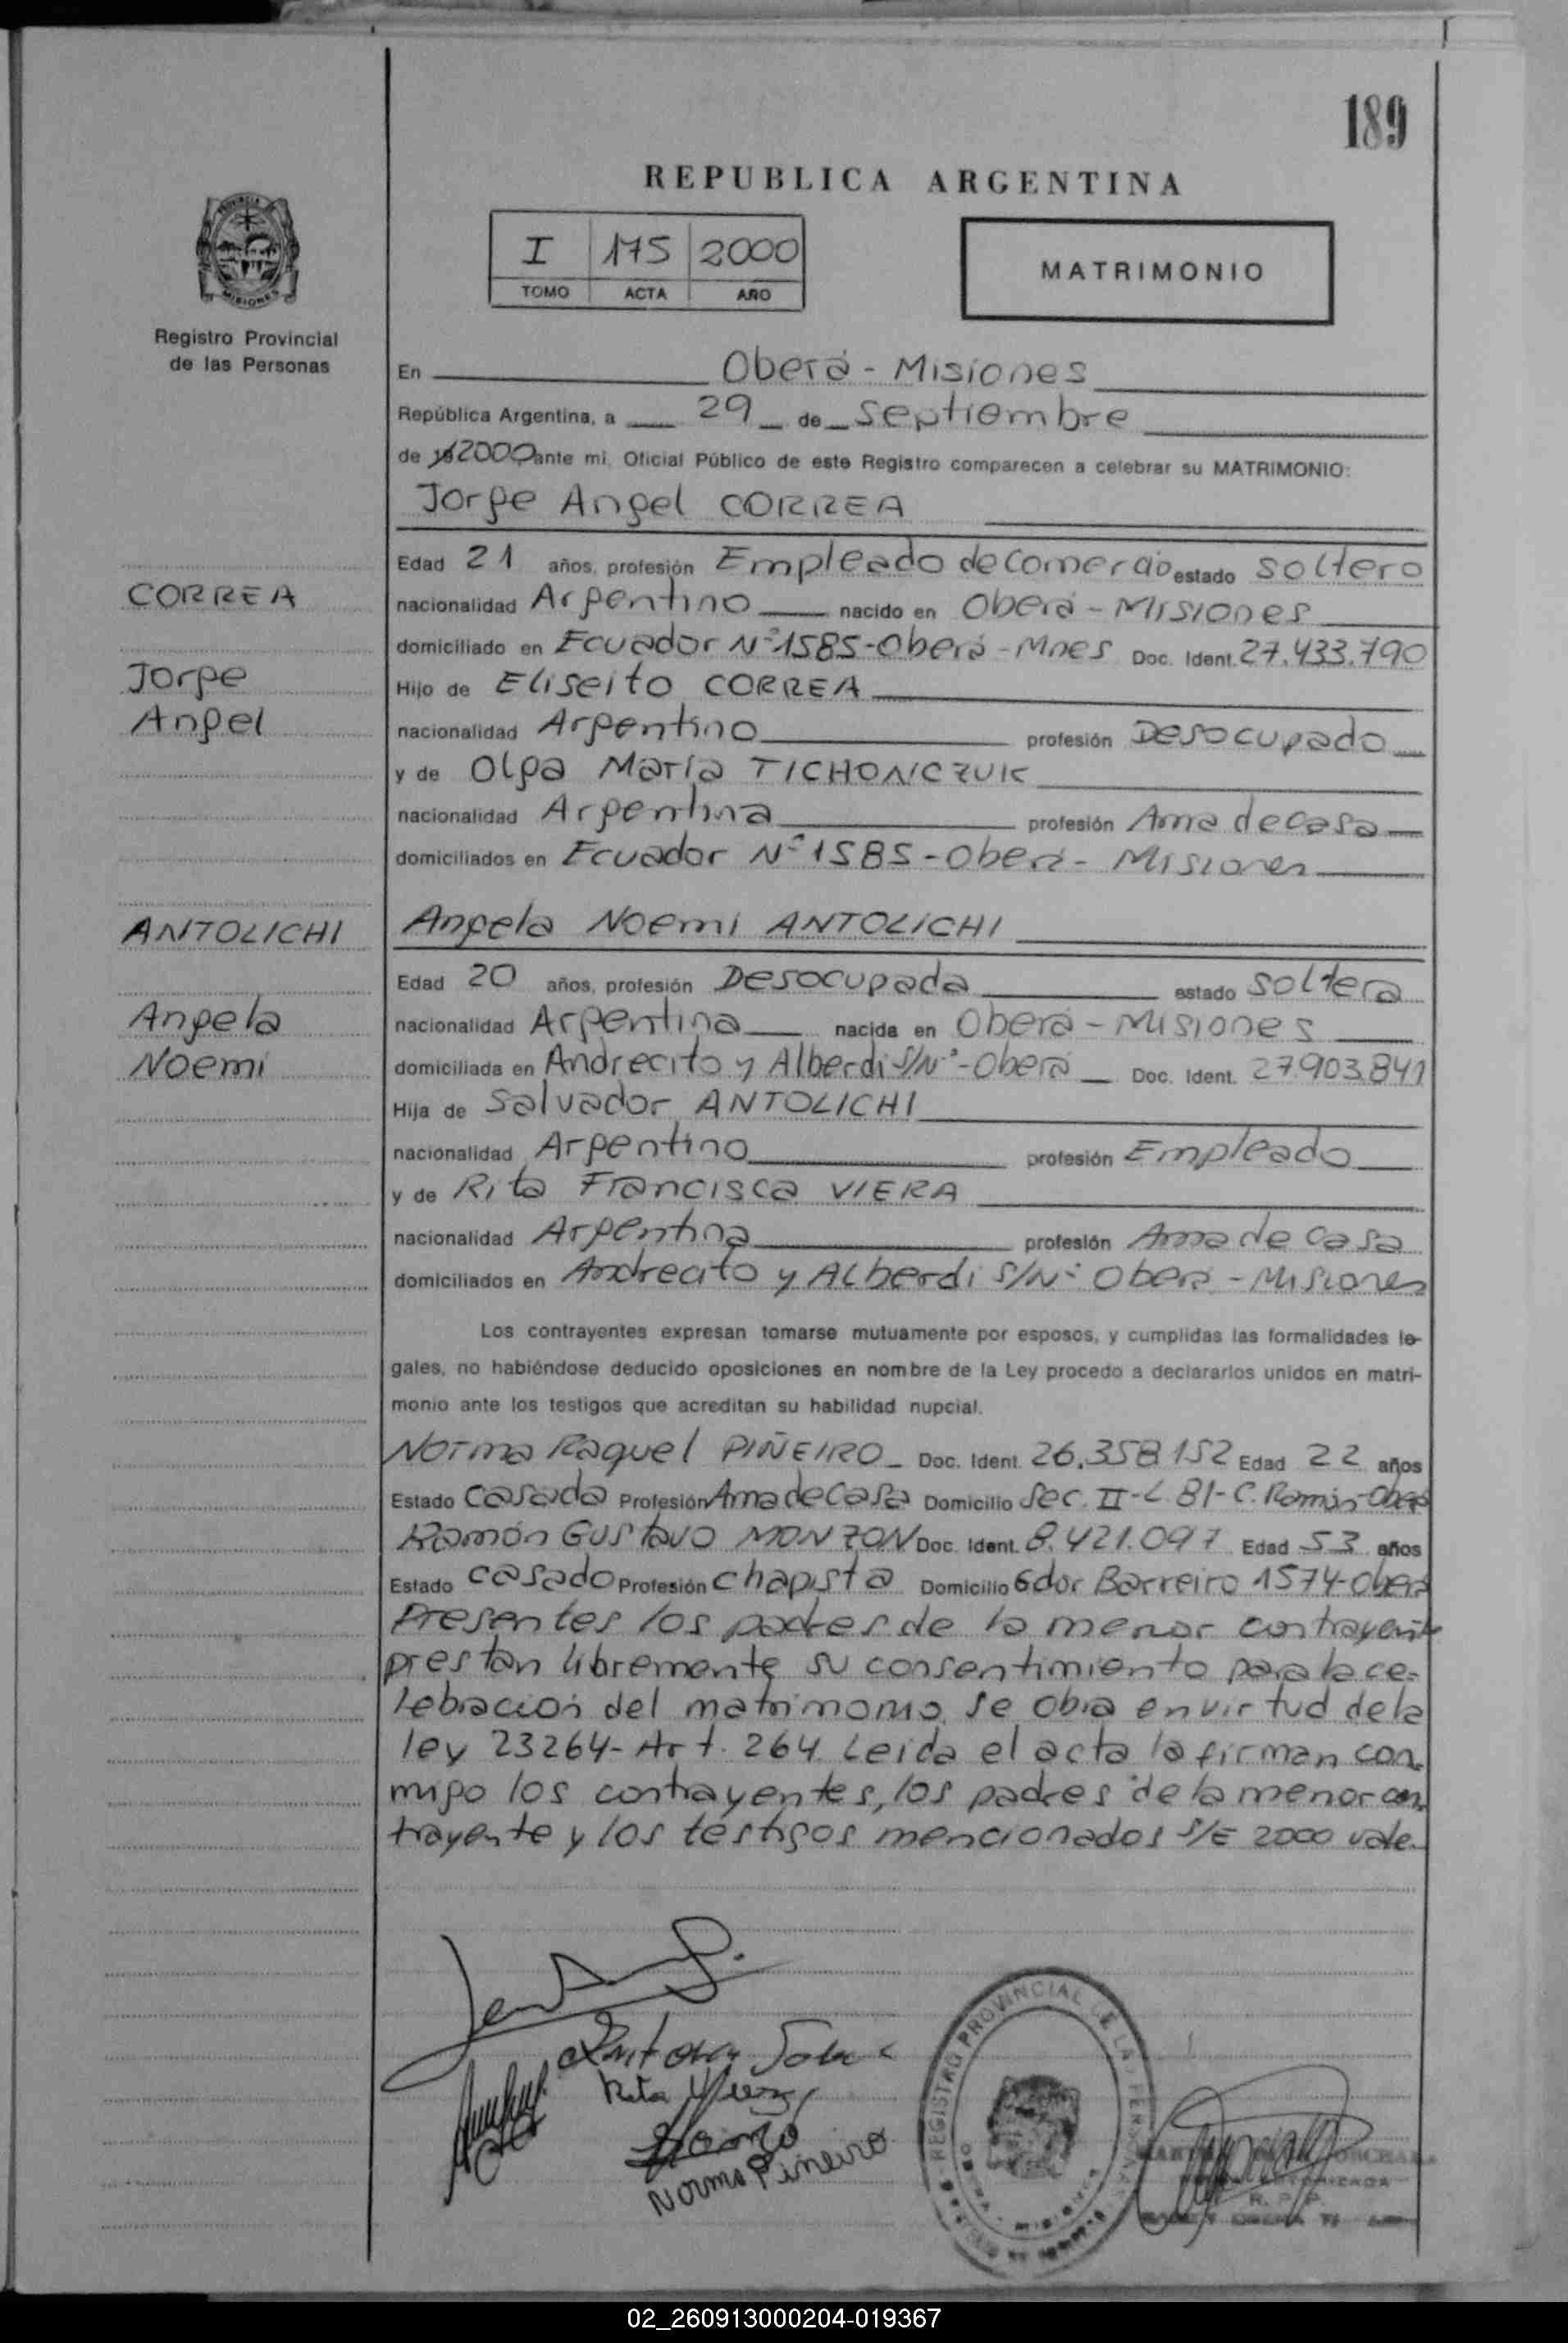 189
REPUBLICA ARGENTINA
I 175 2000
TOMO ACTA AÑO
MATRIMONIO
MISIONES
Registro Provincial
de las Personas
En Oberá - Misiones
República Argentina, a 29 de septiembre
de 2000 ante mi, Oficial Público de este Registro comparecen a celebrar su MATRIMONIO:
Jorge Angel CORREA
Edad 21 años, profesión Empleado de comercio estado soltero
CORREA
nacionalidad Argentino nacido en Oberá - Misiones
domiciliado en Ecuador Nº 1585 - Oberá - Mnes Doc. Ident. 27.433.790
Jorge
Hijo de Eliseito CORREA
Angel
nacionalidad Argentino profesión Desocupado
y de Olga María TICHONCZUK
nacionalidad Argentina profesión Ama de casa
domiciliados en Ecuador Nº 1585 - Oberá - Misiones
ANTOLICHI
Angela Noemi ANTOLICHI
Edad 20 años, profesión Desocupada estado soltera
Angela
nacionalidad Argentina nacida en Oberá - Misiones
Noemi
domiciliada en Andrecito y Alberdi S/Nº - Oberá Doc. Ident. 27.903.841
Hija de Salvador ANTOLICHI
nacionalidad Argentino profesión Empleado
y de Rita Francisca VIERA
nacionalidad Argentina profesión Ama de casa
domiciliados en Andrecito y Alberdi S/Nº Oberá - Misiones
Los contrayentes expresan tomarse mutuamente por esposos, y cumplidas las formalidades le-
gales, no habiéndose deducido oposiciones en nombre de la Ley procedo a declararlos unidos en matri-
monio ante los testigos que acreditan su habilidad nupcial.
Norma Raquel PIÑEIRO Doc. Ident. 26.358.152 Edad 22 años
Estado Casada Profesión Ama de casa Domicilio Sec. II - L. 81 - C. Ramón - Oberá
Ramón Gustavo MONZON Doc. Ident. 8.421.097 Edad 53 años
Estado Casado Profesión chapista Domicilio Gdor Barreiro 1574 - Oberá
Presentes los padres de la menor contrayente
prestan libremente su consentimiento para la ce-
lebración del matrimonio, se obra en virtud de la
ley 23264 - Art. 264. Leída el acta la firman con-
migo los contrayentes, los padres de la menor con-
trayente y los testigos mencionados S/E 2000 vale
Rita
Norma Piñeiro
REGISTRO PROVINCIAL DE LA
R. P. P.
02_260913000204-019367